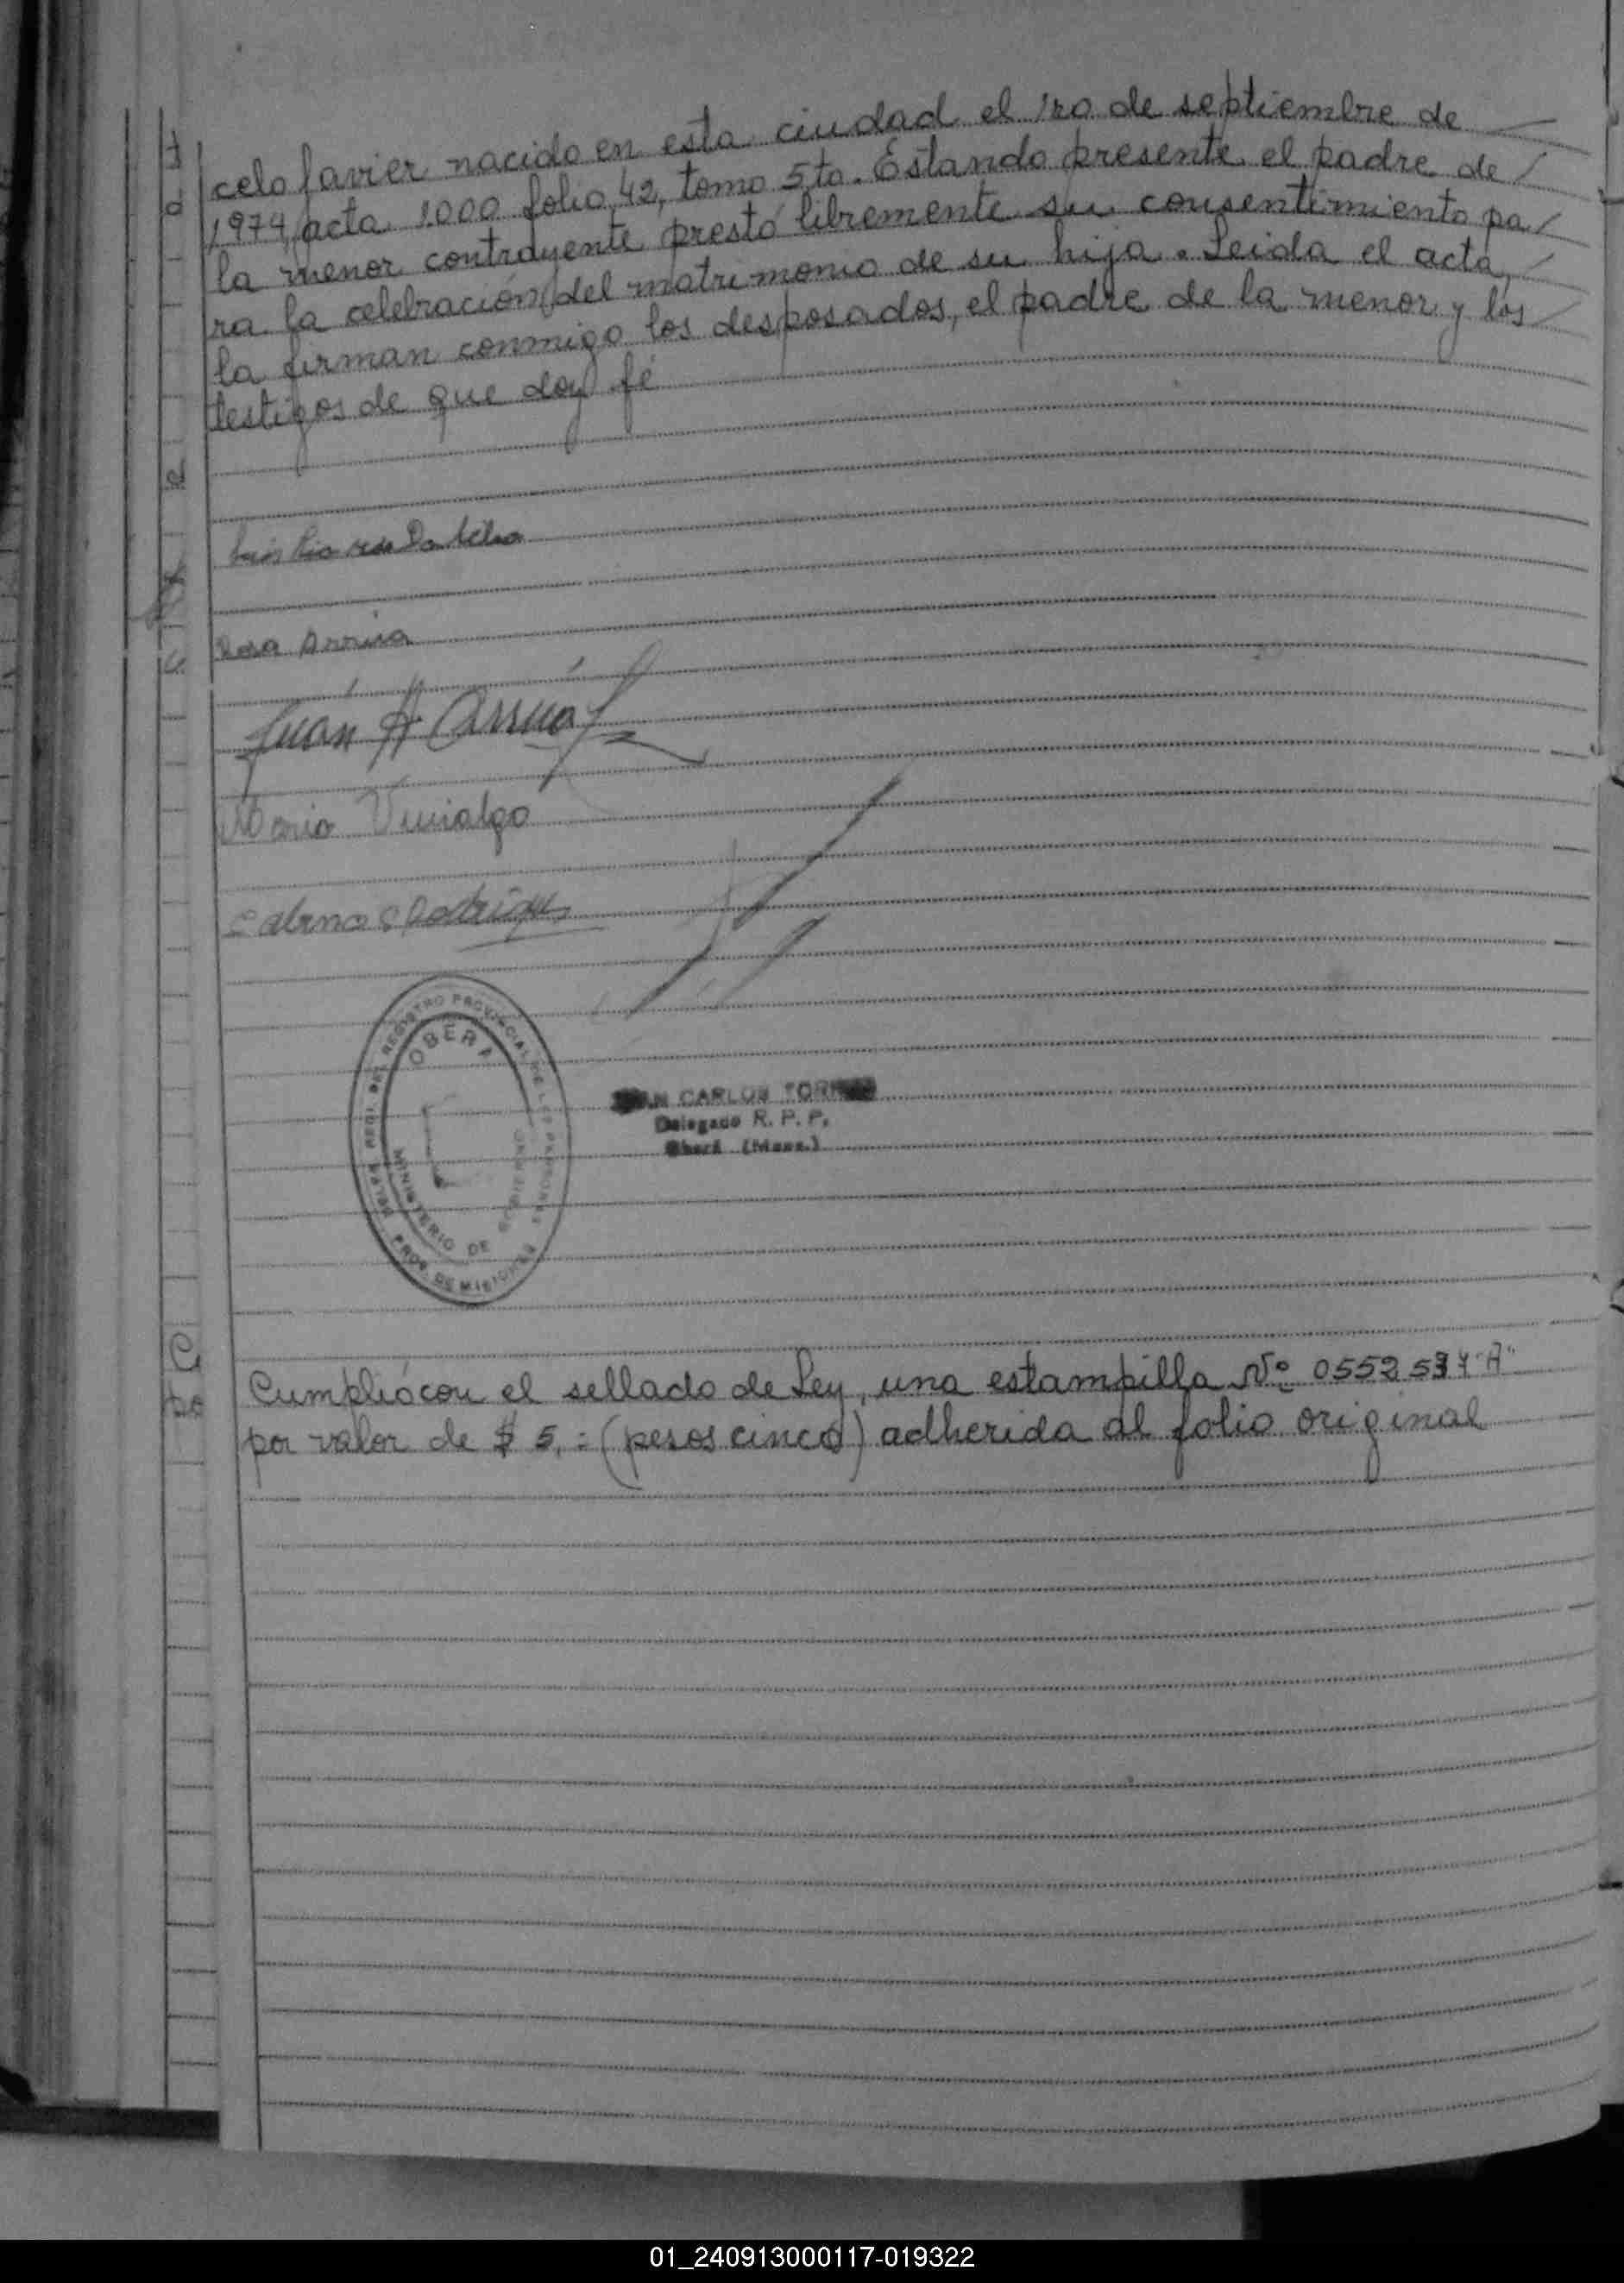 celo Javier nacido en esta ciudad el 1ro de septiembre de —
1974, acta 1.000 folio 42, tomo 5to. Estando presente el padre de /
la menor contrayente prestó libremente su consentimiento pa/
ra la celebración del matrimonio de su hija. Leida el acta, /
la firman conmigo los desposados, el padre de la menor y los /
testigos de que doy fé
Rosa Arrua
Juan A Arrua
Vinialgo
OBERA
MINISTERIO DE GOBIERNO
REGISTRO PROVINCIAL DE LAS PERSONAS
PROV. DE MISIONES
CARLOS
Delegado R. P. P.
Oberá (Mnes.)
Cumplió con el sellado de Ley, una estampilla Nº "A"
por valor de $ 5,= (pesos cinco) adherida al folio original
01_240913000117-019322